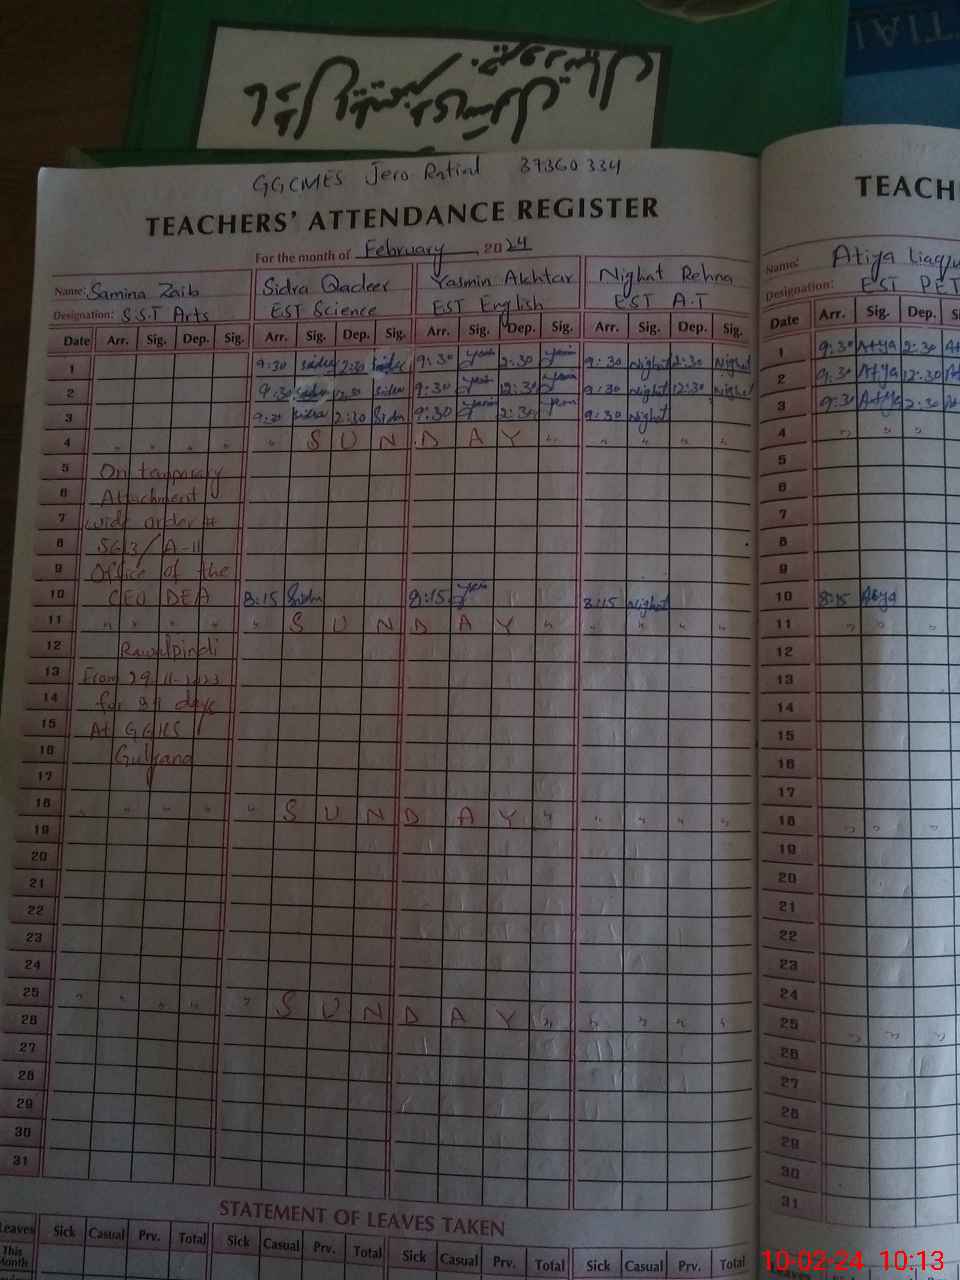 TIAL
GGCMES Jero Ratial 37360334
TEACHERS' ATTENDANCE REGISTER
For the month of February, 2024
Name: Samina Zaib Sidra Qadeer Yasmin Akhtar Nighat Rehna
Designation: S.S.T Arts EST Science EST English EST A.T
Date Arr. Sig. Dep. Sig. Arr. Sig. Dep. Sig. Arr. Sig. Dep. Sig. Arr. Sig. Dep. Sig.
1 9:30 Sidra 2:30 Sidra 9:30 2:30 9:30 Nighat 2:30 Nighat
2 9:30 Sidra 12:30 Sidra 9:30 12:30 9:30 Nighat 12:30 Nighat
3 9:30 Sidra 2:30 Sidra 9:30 2:30 9:30 Nighat
4 " " " " " S U N D A Y " " " " "
5 On temporary
6 Attachment
7 wide order #
8 563/A-11
9 Office of the
10 CEO DEA 8:15 Sidra 8:15 8:15 Nighat
11 " " " " " S U N D A Y " " " " "
12 Rawalpindi
13 From 29-11-2023
14 for 89 days
15 At GGHS
16 Gulyana
17
18 " " " " " S U N D A Y " " " " "
19
20
21
22
23
24
25 " " " " " S U N D A Y " " " " "
26
27
28
29
30
31
STATEMENT OF LEAVES TAKEN
Leaves Sick Casual Prv. Total Sick Casual Prv. Total Sick Casual Prv. Total Sick Casual Prv. Total
This Month
TEACH
Name: Atiya Liaqu
Designation: EST PET
Date Arr. Sig. Dep. Si
1 9:30 Atiya 2:30 At
2 9:30 Atiya 12:30 At
3 9:30 Atiya 2:30 At
4 " " "
5
6
7
8
9
10 8:15 Atiya
11 " " "
12
13
14
15
16
17
18 " " "
19
20
21
22
23
24
25 " " "
26
27
28
29
30
31
10-02-24 10:13